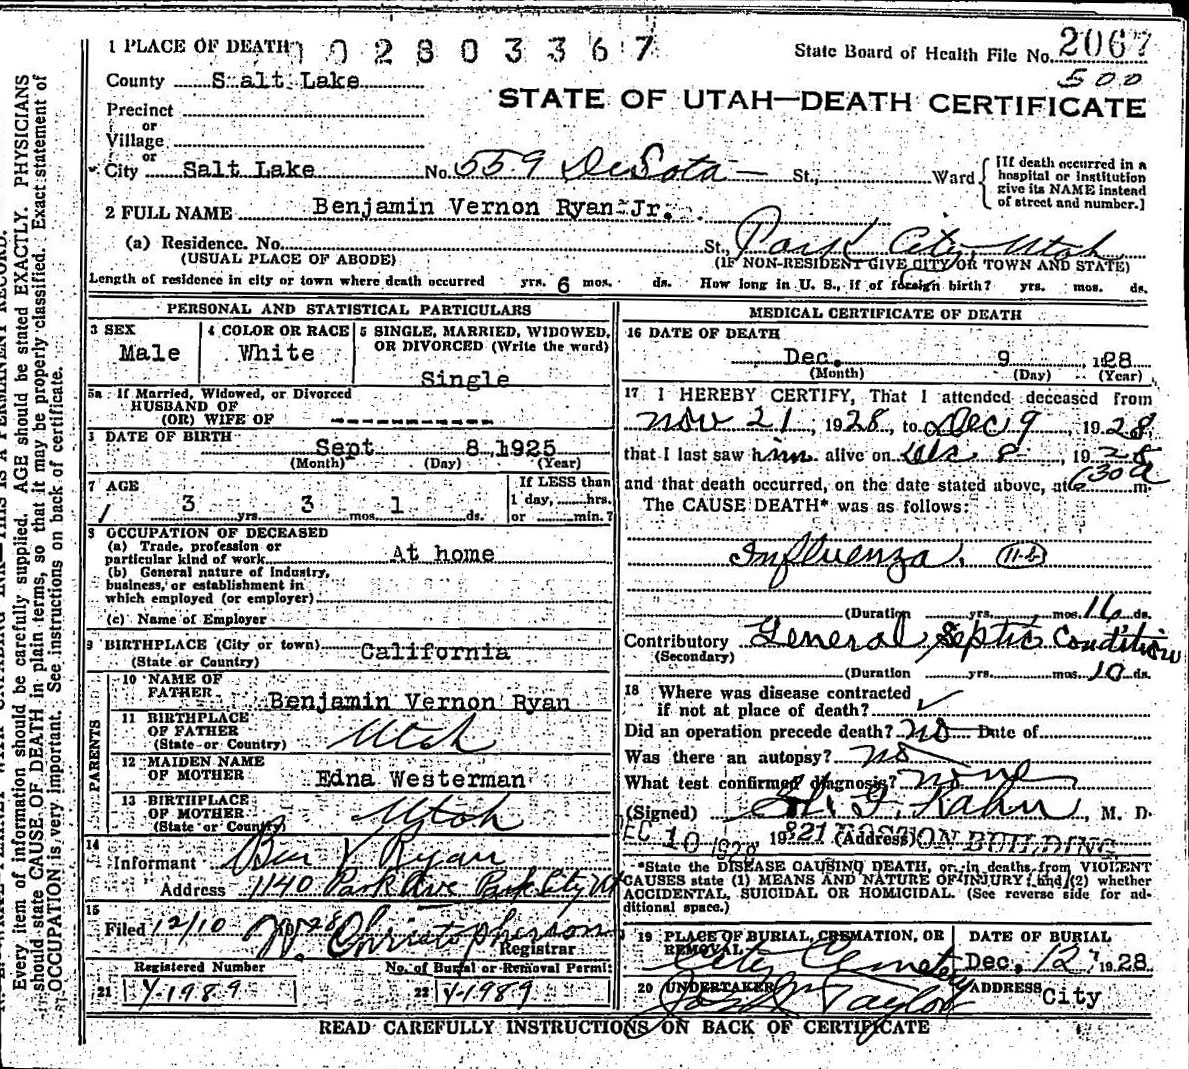 1 PLACE OF DEATH 1 0 2 8 0 3 3 6 7
State Board of Health File No. 2067
500
County Salt Lake
STATE OF UTAH—DEATH CERTIFICATE
Precinct
or
Village
or
City Salt Lake No. 559 DeSota — St., Ward
[If death occurred in a hospital or institution give its NAME instead of street and number.]
2 FULL NAME Benjamin Vernon Ryan Jr.
(a) Residence. No. St., Park City, Utah
(USUAL PLACE OF ABODE) (IF NON-RESIDENT GIVE CITY OR TOWN AND STATE)
Length of residence in city or town where death occurred yrs. 6 mos. ds. How long in U. S., if of foreign birth? yrs. mos. ds.
PERSONAL AND STATISTICAL PARTICULARS
3 SEX
Male
4 COLOR OR RACE
White
5 SINGLE, MARRIED, WIDOWED,
OR DIVORCED (Write the word)
Single
5a If Married, Widowed, or Divorced
HUSBAND OF
(OR) WIFE OF
DATE OF BIRTH
Sept 8,1925
(Month) (Day) (Year)
7 AGE
3 yrs. 3 mos. 1 ds.
If LESS than
1 day, hrs.
or min.?
8 OCCUPATION OF DECEASED
(a) Trade, profession or
particular kind of work At home
(b) General nature of industry,
business, or establishment in
which employed (or employer)
(c) Name of Employer
9 BIRTHPLACE (City or town)
(State or Country) California
PARENTS
10 NAME OF
FATHER Benjamin Vernon Ryan
11 BIRTHPLACE
OF FATHER
(State or Country) Utah
12 MAIDEN NAME
OF MOTHER Edna Westerman
13 BIRTHPLACE
OF MOTHER
(State or Country) Utah
14
Informant Ben V Ryan
Address 1140 Park Ave Park City Ut
15
Filed 12/10 1928 W. Christopherson
Registrar
Registered Number No. of Burial or Removal Permit
21 Y-1989 22 Y-1989
MEDICAL CERTIFICATE OF DEATH
16 DATE OF DEATH
Dec. 9 1928
(Month) (Day) (Year)
17 I HEREBY CERTIFY, That I attended deceased from
Nov 21, 1928, to Dec 9, 1928,
that I last saw him alive on Dec 8, 1928
and that death occurred, on the date stated above, at 630 a m.
The CAUSE DEATH* was as follows:
Influenza. 11-b
(Duration yrs. mos. 16 ds.
Contributory General Septic Condition
(Secondary)
(Duration yrs. mos. 10 ds.
18 Where was disease contracted
if not at place of death?
Did an operation precede death? no Date of
Was there an autopsy? no
What test confirmed diagnosis? none
(Signed) Kahn, M. D.
EC 10 1928 19 821 (Address) BOSTON BUILDING
*State the DISEASE CAUSING DEATH, or in deaths from VIOLENT
CAUSES state (1) MEANS AND NATURE OF INJURY, and (2) whether
ACCIDENTAL, SUICIDAL OR HOMICIDAL. (See reverse side for ad-
ditional space.)
19 PLACE OF BURIAL, CREMATION, OR
REMOVAL
City Cemetery
DATE OF BURIAL
Dec. 12, 1928
20 UNDERTAKER
Taylor
ADDRESS City
READ CAREFULLY INSTRUCTIONS ON BACK OF CERTIFICATE
Every item of information should be carefully supplied. AGE should be stated EXACTLY. PHYSICIANS
should state CAUSE OF DEATH in plain terms, so that it may be properly classified. Exact statement of
OCCUPATION is very important. See instructions on back of certificate.